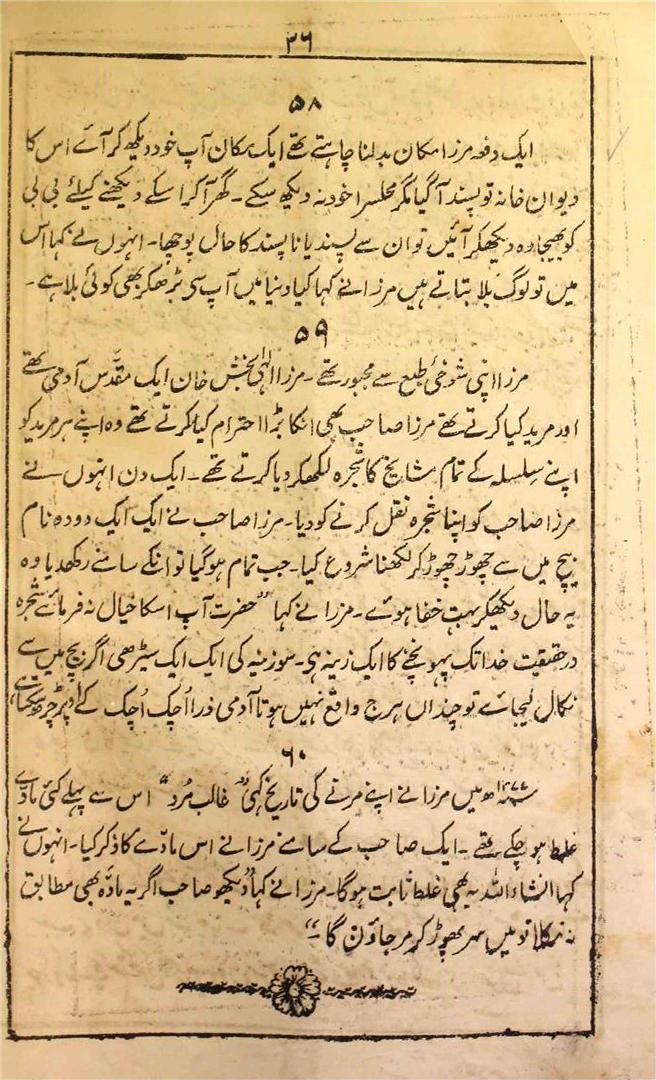 ۳۶
۵۸
ایک دفعہ مرزا مکان بدلنا چاہتے تھے ایک مکان آپ خود دیکھ کر آئے اس کا
دیوان خانہ تو پسند آگیا مگر محلسرا خود نہ دیکھ سکے ۔ گھر آکر اسکے دیکھنے کیلئے بی بی
کو بھیجا وہ دیکھکر آئیں تو ان سے پسند یا ناپسند کا حال پوچھا ۔ انہوں نے کہا اس
میں تو لوگ بلا بتاتے ہیں مرزا نے کہا کیا دنیا میں آپ سی بڑھکر بھی کوئی بلا ہے ۔
۵۹
مرزا اپنی شوخیٔ طبع سے مجبور تھے ۔ مرزا الٰہی بخش خان ایک مقدّس آدمی تھے
اور مرید کیا کرتے تھے مرزا صاحب بھی انکا بڑا احترام کیا کرتے تھے وہ اپنے ہر مرید کو
اپنے سلسلہ کے تمام مشایخ کا شجرہ لکھکر دیا کرتے تھے ۔ ایک دن انہوں نے
مرزا صاحب کو اپنا شجرہ نقل کرنے کو دیا ۔ مرزا صاحب نے ایک ایک دو دو نام
بیچ میں سے چھوڑ چھوڑ کر لکھنا شروع کیا ۔ جب تمام ہوگیا تو انکے سامنے رکھدیا وہ
یہ حال دیکھکر بہت خفا ہوئے ۔ مرزا نے کہا ”حضرت آپ اسکا خیال نہ فرمائے شجرہ
درحقیقت خدا تک پہونچنے کا ایک زینہ ہی ۔ سو زینہ کی ایک ایک سیڑھی اگر بیچ میں سے
نکال لیجائے تو چنداں ہرج واقع نہیں ہوتا آدمی ذرا اُچک اُچک کے اوپر چڑھ سکتا ہے
۶۰
۱۲۷۷ھ میں مرزا نے اپنے مرنے کی تاریخ کہی ”غالب مُرد“ اس سے پہلے کئی مادّے
غلط ہوچکے تھے ۔ ایک صاحب کے سامنے مرزا نے اس مادّے کا ذکر کیا ۔ انہوں نے
کہا انشاء اللہ یہ بھی غلط ثابت ہوگا ۔ مرزا نے کہا ”دیکھو صاحب اگر یہ مادّہ بھی مطابق
نہ نکلا تو میں سر پھوڑ کر مر جاؤں گا ۔“